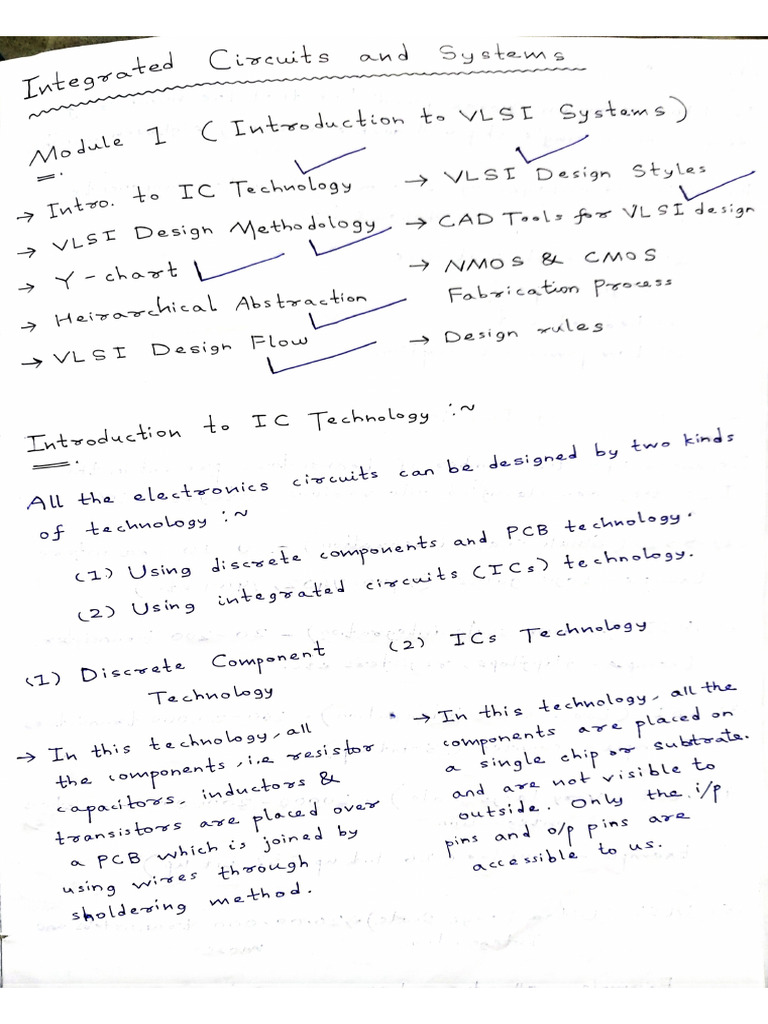 Integrated Circuits and Systems
Module 1 ( Introduction to VLSI Systems )
→ Intro. to IC Technology
→ VLSI Design Methodology
→ Y-chart
→ Heirarchical Abstraction
→ VLSI Design Flow
→ VLSI Design Styles
→ CAD Tools for VLSI design
→ NMOS & CMOS
Fabrication Process
→ Design rules
Introduction to IC Technology :~
All the electronics circuits can be designed by two kinds
of technology :~
(1) Using discrete components and PCB technology.
(2) Using integrated circuits (ICs) technology.
(1) Discrete Component
Technology
→ In this technology, all
the components, i.e resistor
capacitors, inductors &
transistors are placed over
a PCB which is joined by
using wires through
sholdering method.
(2) ICs Technology
→ In this technology, all the
components are placed on
a single chip or subtrate.
and are not visible to
outside. Only the i/p
pins and o/p pins are
accessible to us.